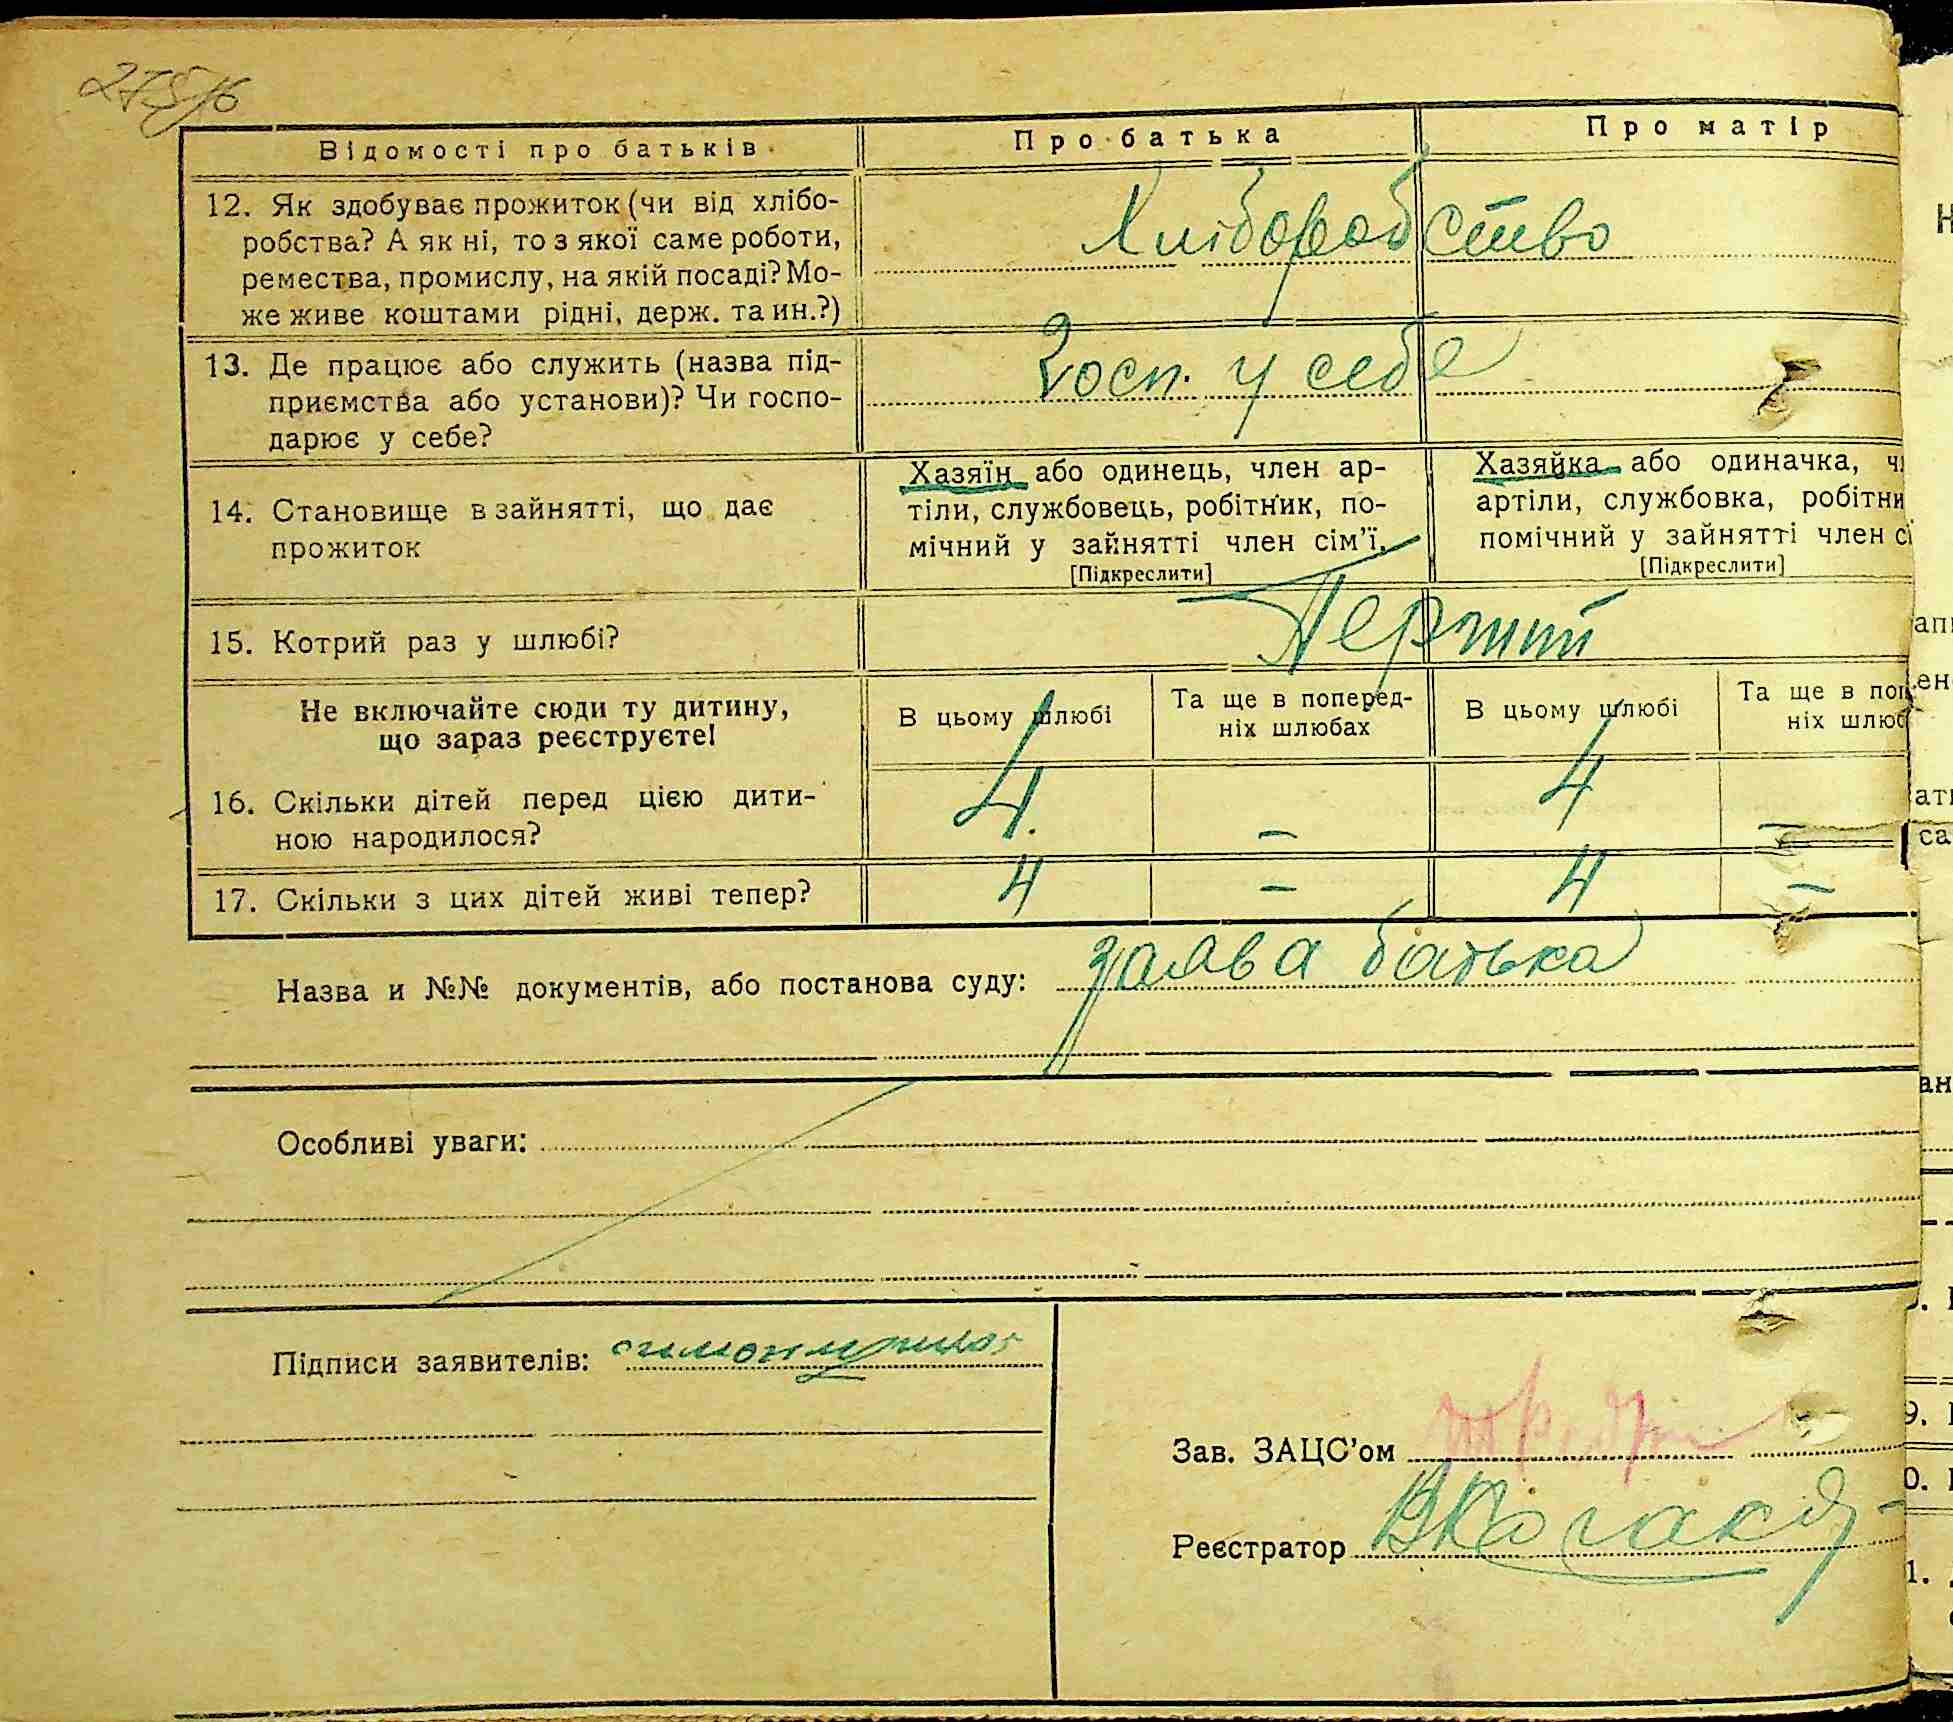 Відомості про батьків
Про батька
Про матір
12. Як здобуває прожиток (чи від хлібо-
робства? А як ні, то з якої саме роботи,
ремества, промислу, на якій посаді? Мо-
же живе коштами рідні, держ. та ин.?)
Хліборобство
13. Де працює або служить (назва під-
приємства або установи)? Чи госпо-
дарює у себе?
Госп. у себе
14. Становище в зайнятті, що дає
прожиток
Хазяїн або одинець, член ар-
тіли, службовець, робітник, по-
мічний у зайнятті член сім'ї.
[Підкреслити]
Хазяйка або одиначка, ч
артіли, службовка, робітни
помічний у зайнятті член сі
[Підкреслити]
15. Котрий раз у шлюбі?
Перший
Не включайте сюди ту дитину,
що зараз реєструєте!
В цьому шлюбі
Та ще в поперед-
ніх шлюбах
В цьому шлюбі
Та ще в поп
ніх шлюб
16. Скільки дітей перед цією дити-
ною народилося?
4. – 4 –
17. Скільки з цих дітей живі тепер?
4 – 4 –
Назва и №№ документів, або постанова суду: заява батька
Особливі уваги:
Підписи заявителів:
Зав. ЗАЦС'ом
Реєстратор